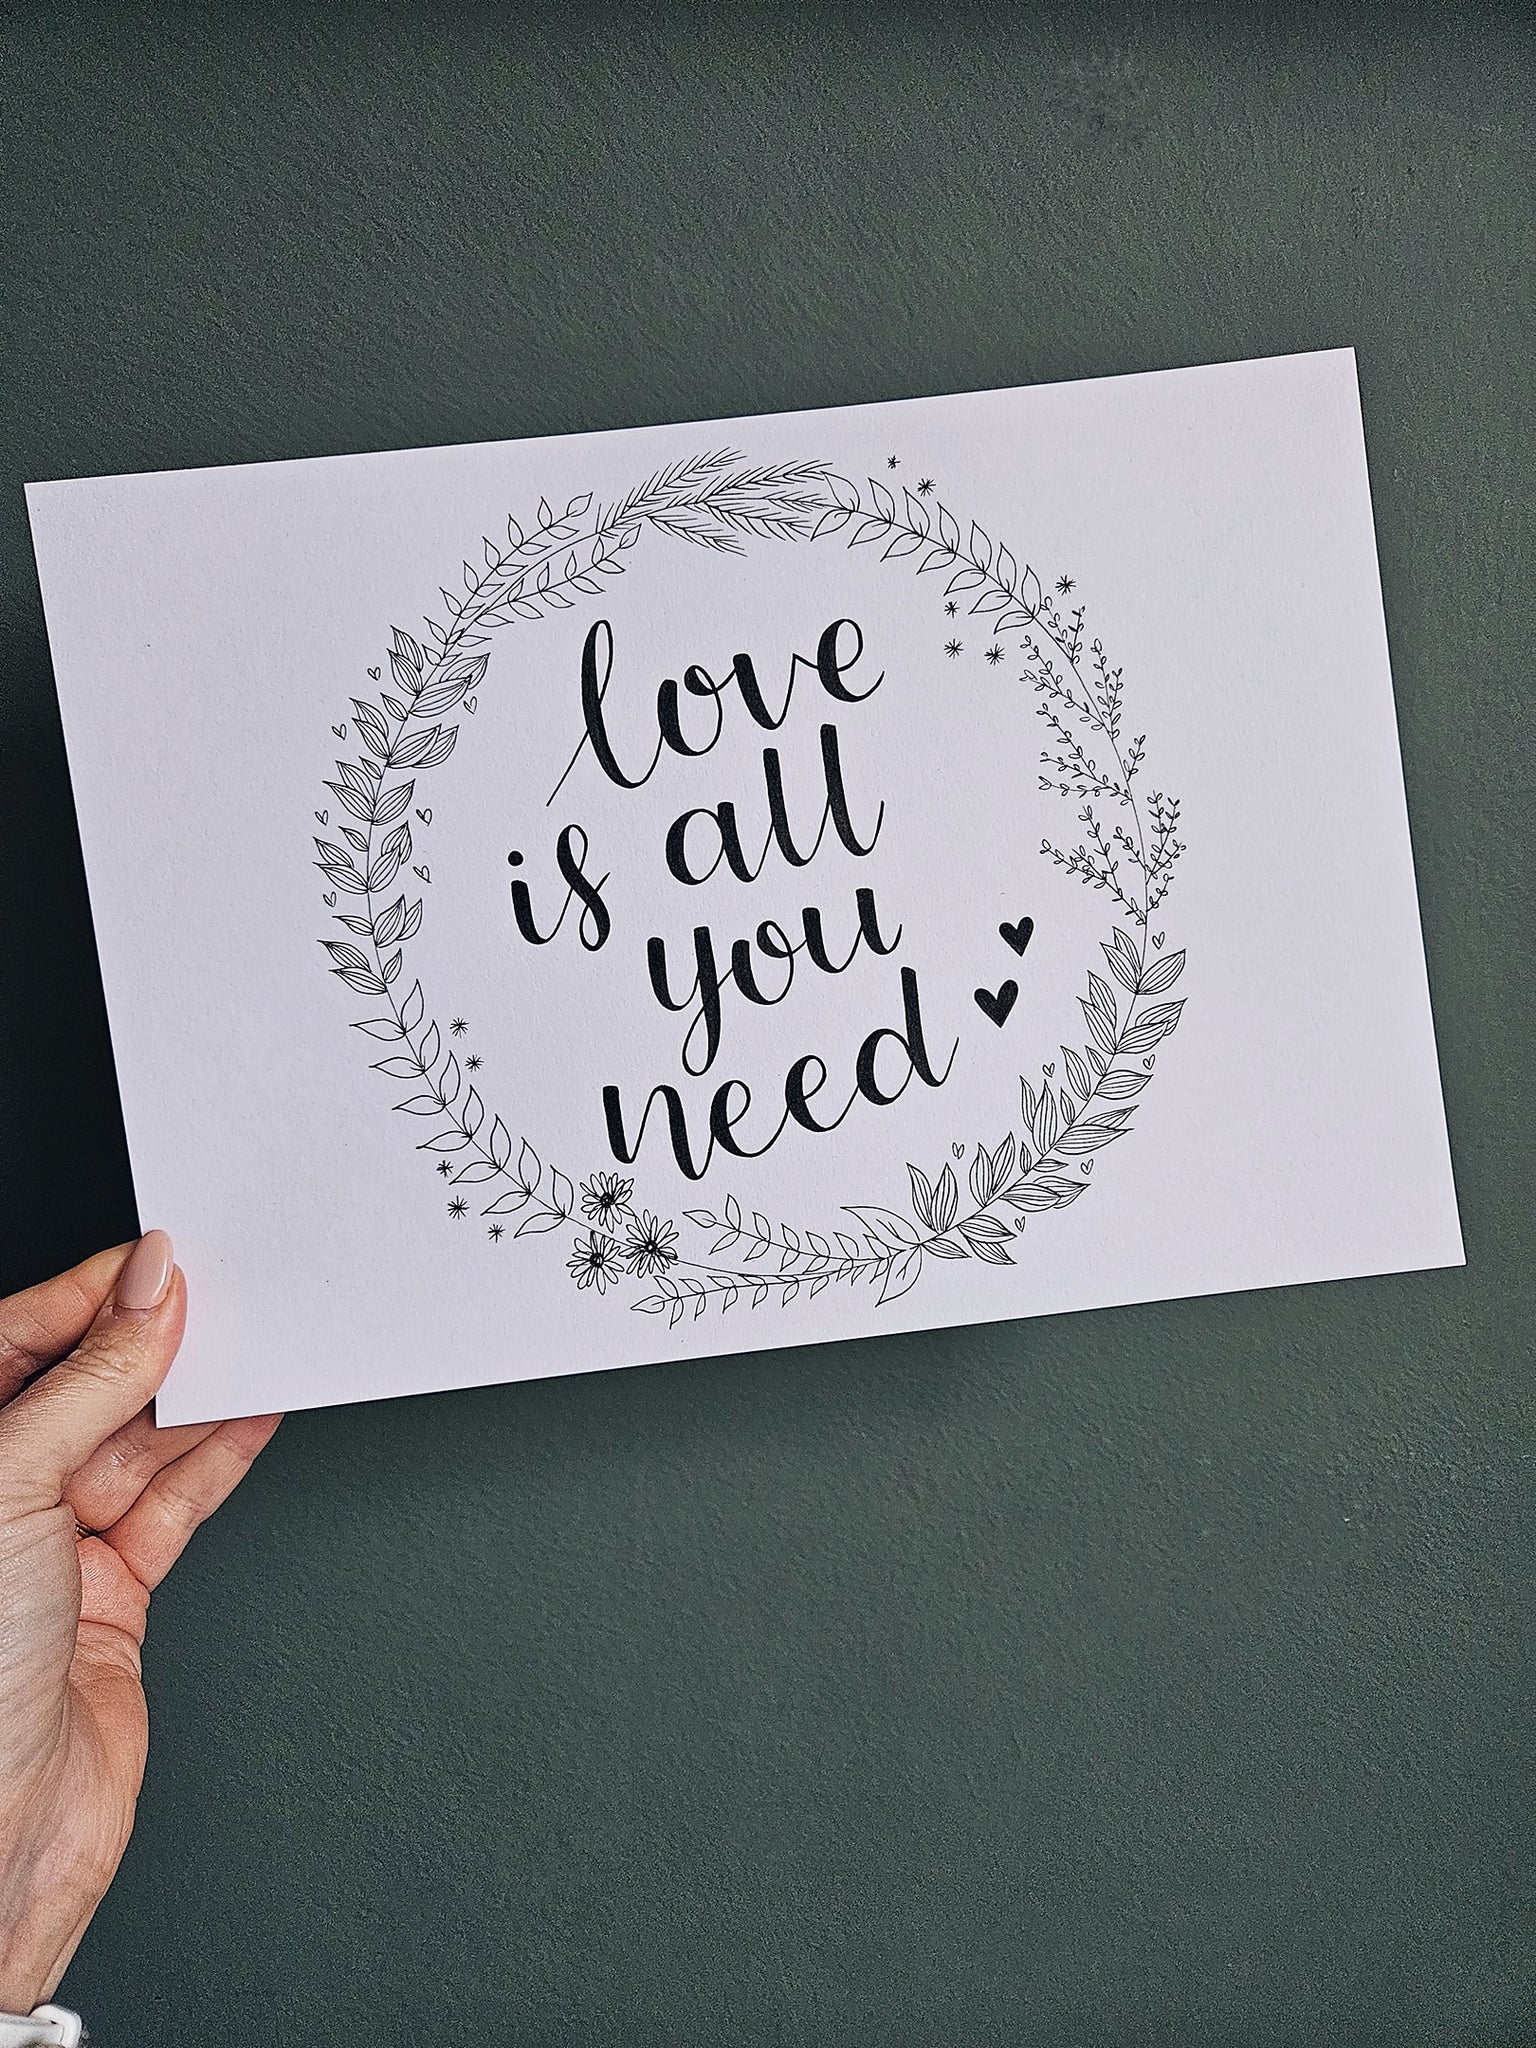 love
is all
you
need